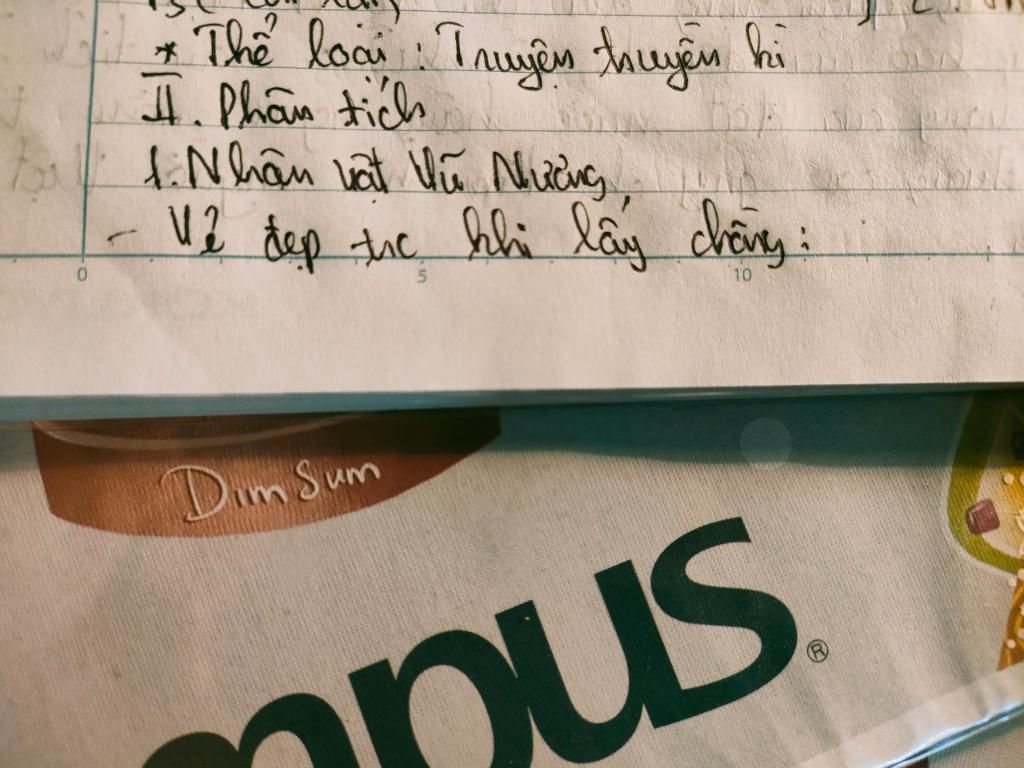 * Thể loại : Truyện truyền kì
II. Phân tích
1. Nhân vật Vũ Nương
- Vẻ đẹp trc khi lấy chồng:
0 5 10
Dim Sum
mpus®